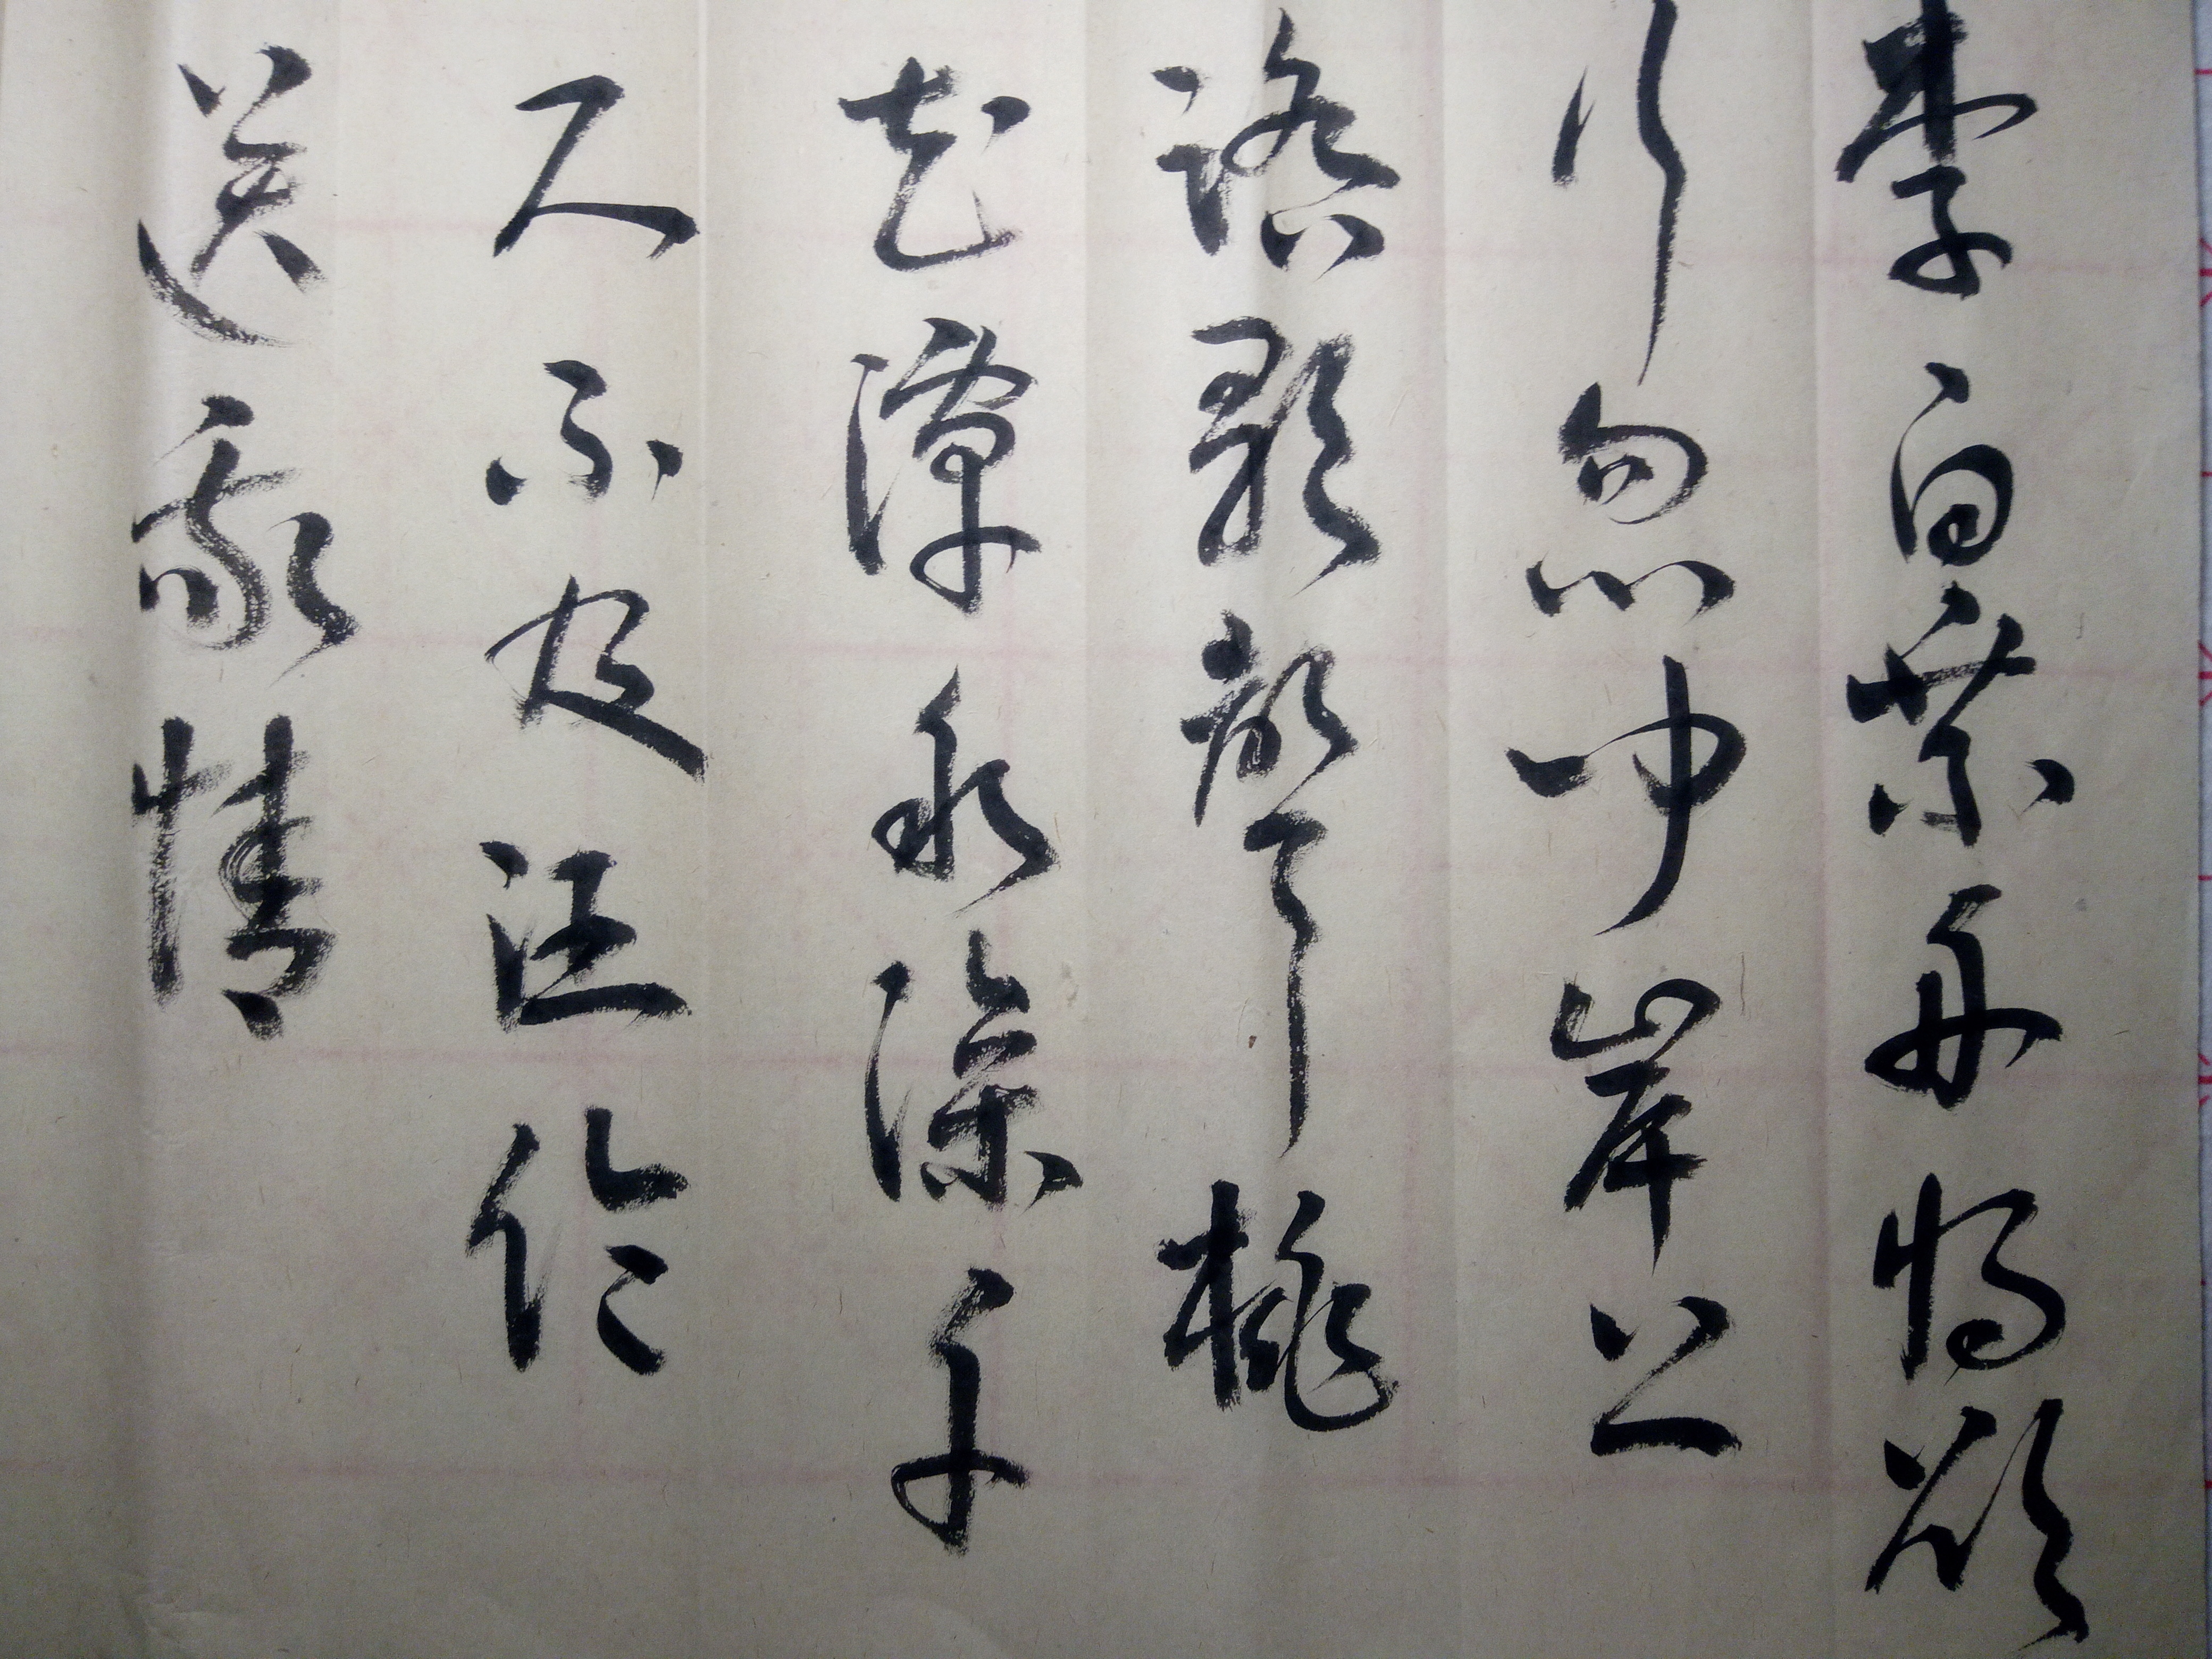 李白乘舟將欲
行忽聞岸上
踏歌聲桃
花潭水深千
尺不及汪倫
送我情